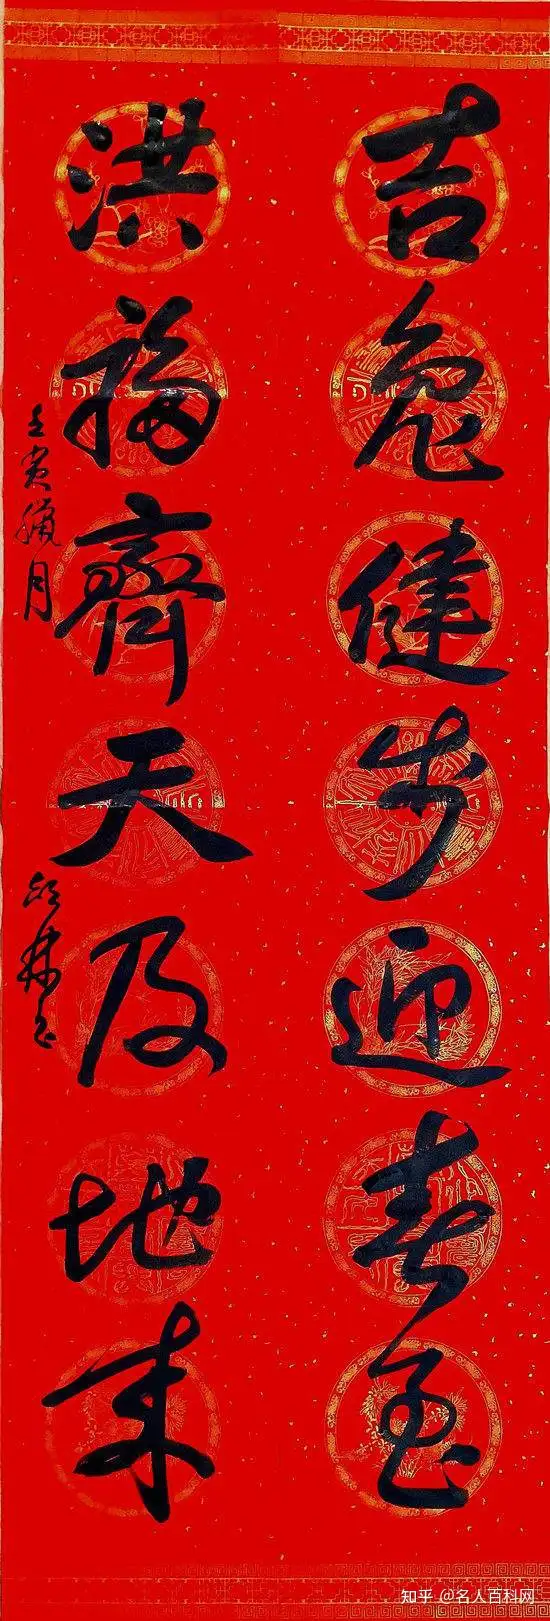 吉兔健步迎春至
洪福齊天及地来
壬寅臘月
知乎 @名人百科网